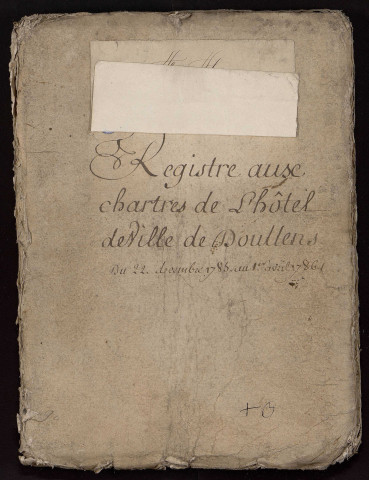 Registre aux
chartres de L'hôtel
de Ville de Doullens
Du 22. decembre 1785. au 1er avril 1786
+3